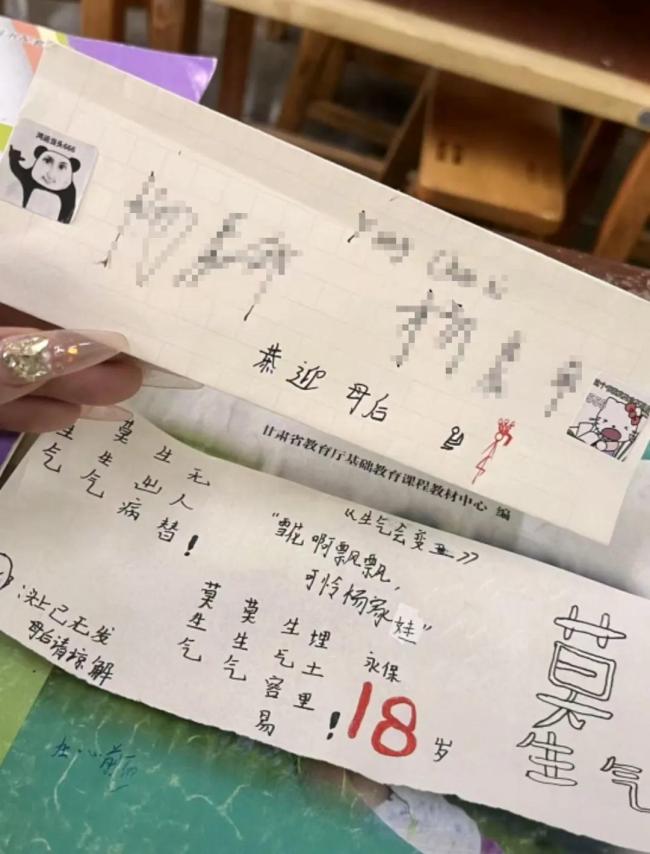 鸿运当头666
恭迎母后
甘肃省教育厅基础教育课程教材中心 编
生气
莫生气
生出病
无人替!
《生气会变丑》
"雪花啊飘飘,
可怜杨家娃"
:头上已无发
母后请谅解
莫生气
莫生气
生气容易
埋土里!
永保
18岁
莫生气